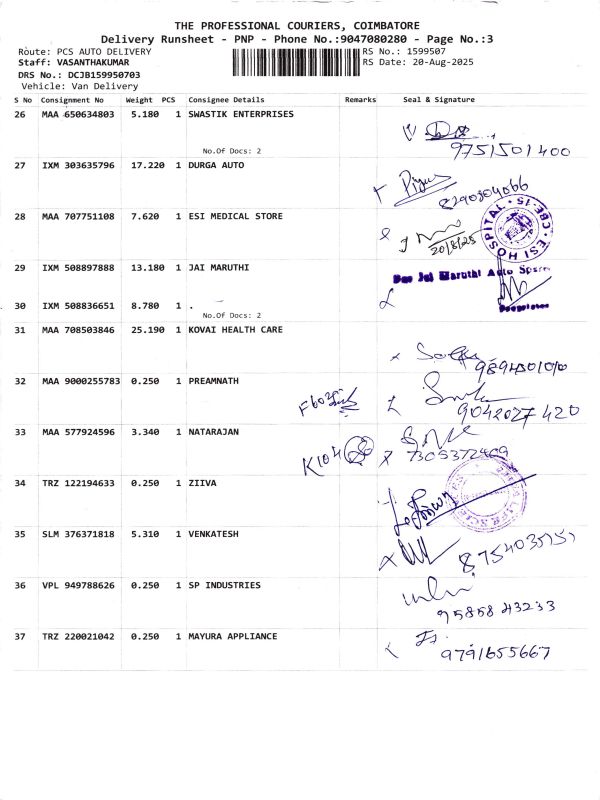 THE PROFESSIONAL COURIERS, COIMBATORE
Delivery Runsheet - PNP - Phone No.:9047080280 - Page No.:3
Route: PCS AUTO DELIVERY RS No.: 1599507
Staff: VASANTHAKUMAR RS Date: 20-Aug-2025
DRS No.: DCJB159950703
Vehicle: Van Delivery
S No Consignment No Weight PCS Consignee Details Remarks Seal & Signature
26 MAA 650634803 5.180 1 SWASTIK ENTERPRISES
No.Of Docs: 2
9751501400
27 IXM 303635796 17.220 1 DURGA AUTO
8290304066
28 MAA 707751108 7.620 1 ESI MEDICAL STORE
20/8/25
ESI HOSPITAL CBE-15
29 IXM 508897888 13.180 1 JAI MARUTHI
Jai Maruthi Auto Spares
30 IXM 508836651 8.780 1 .
No.Of Docs: 2
31 MAA 708503846 25.190 1 KOVAI HEALTH CARE
32 MAA 9000255783 0.250 1 PREAMNATH
9042027420
33 MAA 577924596 3.340 1 NATARAJAN
K104
7305372469
34 TRZ 122194633 0.250 1 ZIIVA
35 SLM 376371818 5.310 1 VENKATESH
8754035151
36 VPL 949788626 0.250 1 SP INDUSTRIES
9585843233
37 TRZ 220021042 0.250 1 MAYURA APPLIANCE
9791655667